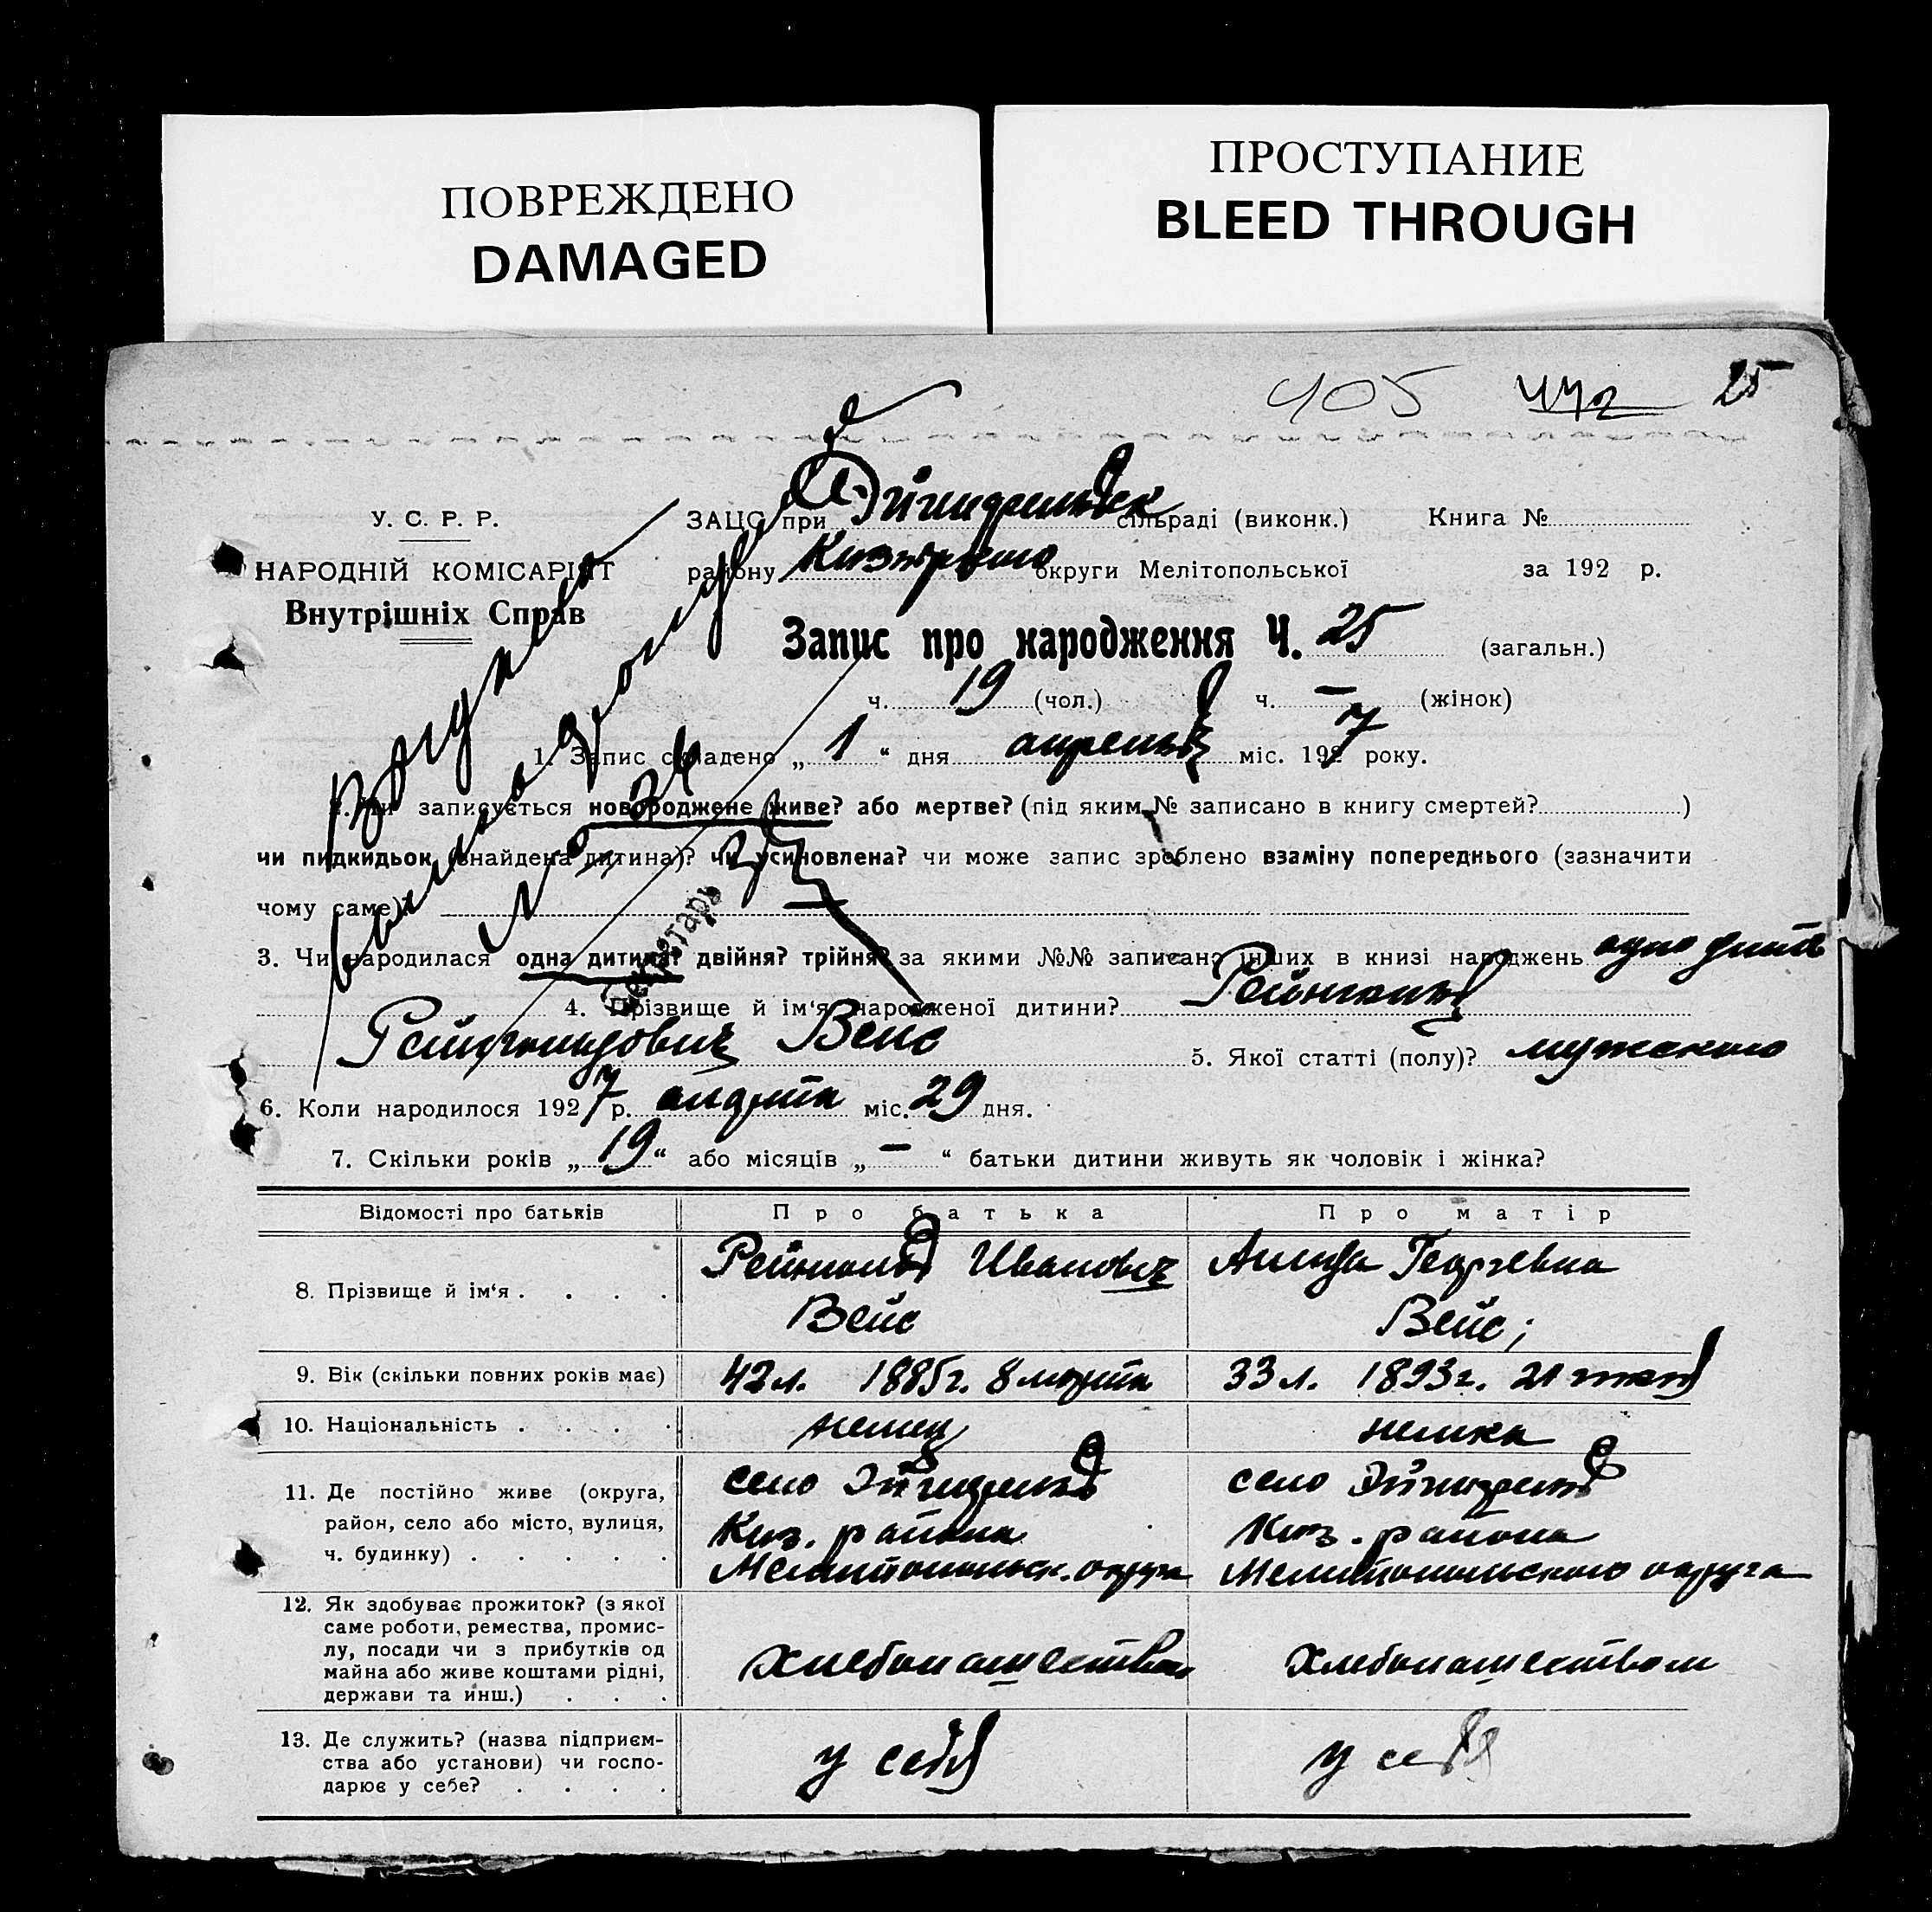 ПОВРЕЖДЕНО
DAMAGED
ПРОСТУПАНИЕ
BLEED THROUGH
405 442 25
У. С. Р. Р.
НАРОДНІЙ КОМІСАРІЯТ
Внутрішніх Справ
ЗАЦС при сільраді (виконк.) Книга №
району округи Мелітопольської за 192 р.
Запис про народження Ч. 25 (загальн.)
ч. 19 (чол.) ч. — (жінок)
1. Запис складено „ 1 “ дня апреля міс. 1927 року.
записується новороджене живе? або мертве? (під яким № записано в книгу смертей? )
чи пидкидьок (знайдена дитина)? чи усиновлена? чи може запис зроблено взаміну попереднього (зазначити
чому саме)?
Секретарь
3. Чи народилася одна дитина? двійня? трійня? за якими №№ записано інших в книзі народжень одно дитя
4. Прізвище й ім‘я народженої дитини? Рейнгольд
Рейнгольдович Вейс 5. Якої статті (полу)? мужского
6. Коли народилося 1927 р. марта міс. 29 дня.
7. Скільки років „ 19 “ або місяців „ — “ батьки дитини живуть як чоловік і жінка?
Відомості про батьків Про батька Про матір
8. Прізвище й ім‘я . . . . . Рейнгольд Иванович Вейс Георгевна Вейс;
9. Вік (скільки повних років має) 42 л. 1885 г. 8 марта 33 л. 1893 г. 21
10. Національність . . . . немец немка
11. Де постійно живе (округа, район, село або місто, вулиця, ч. будинку) . . . . . село Эйгенфельд Киз. района Мелитопольск. округа село Эйгенфельд Киз. района Мелитопольского округа
12. Як здобуває прожиток? (з якої саме роботи, ремества, промислу, посади чи з прибутків од майна або живе коштами рідні, держави та инш.) . . . хлебопашеством хлебопашеством
13. Де служить? (назва підприємства або установи) чи господарює у себе? . . . . у себя у себя